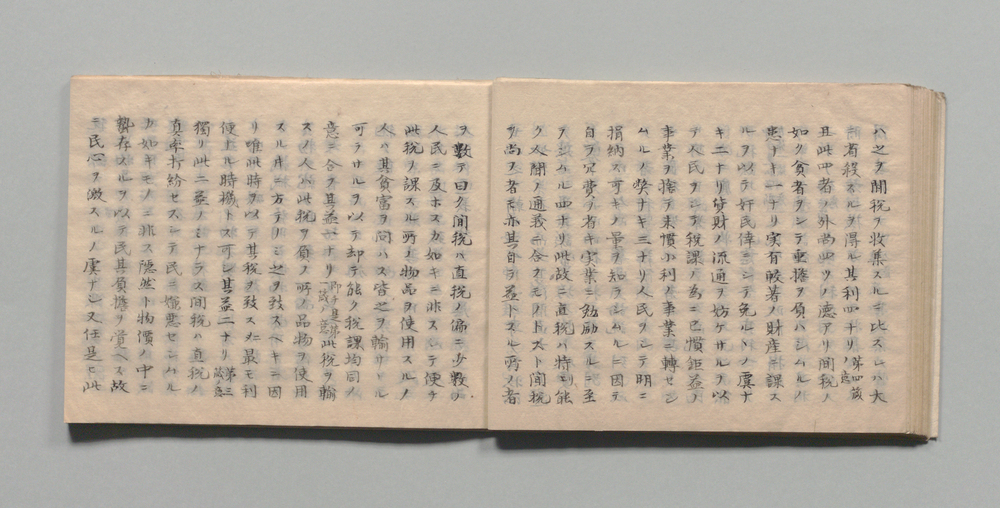 ハ之ヲ間税ヲ收集スルニ比スレハ大
冗者殺スルヲ得ル其利四ナリ
且此四者ノ外尚四ツノ德アリ間税ノ
如ク貧者ヲシテ重擔ヲ負ハシムルノ
患ナキ一ナリ実有較著ノ財産ニ課ス
ルヲ以テ奸民倖ニシテ免ルヽノ虞ナ
キ二ナリ貨財ノ流通ヲ妨ケサルヲ以
テ人民ヲシテ税課ノ為ニ已慣鉅益ノ
事業ヲ捨テ未慣小利ノ事業ニ轉セシ
ムルノ弊ナキ三ナリ人民ヲシテ明ニ
捐納ス可キノ量ヲ知ラシムルニ因テ
自ラ冗費ヲ省キ実業ニ勉励スルニ至
ラシムル四ナリ此故ニ直税ハ特リ能
ク人間ノ通義ニ合スルノミナラス間税
ヲ尚フ者モ亦其自ラ益トスル所ノ者
ヲ數テ曰ク間税ハ直税ノ偏ニ少數ノ
人民ニ及ホスカ如キニ非スシテ便チ
此税ヲ課スル所ノ物品ヲ使用スルノ
人ハ其貧富ヲ問ハス皆之ヲ輸サヽル
可ラサルヲ以テ却テ能ク税課均同ノ
意ニ合ス其益一ナリ 此税ヲ輸
スノ人ハ此税ヲ負フ所ノ品物ヲ使用
スル片ニ方テノミ之ヲ致スヘキニ因
リ唯此時ヲ以テ其税ヲ致スヿ最モ利
便ナル時機トス可シ其益二ナリ
獨リ此二益ノミナラス間税ハ直税ノ
直率打紛セスシテ民ニ嫌悪セシムル
カ如キモノニ非ス隠然ト物價ノ中ニ
蟄存スルヲ以テ民其負擔ヲ覚ヘス故
ニ民心ヲ激スルノ虞ナシ又任是ヒ此